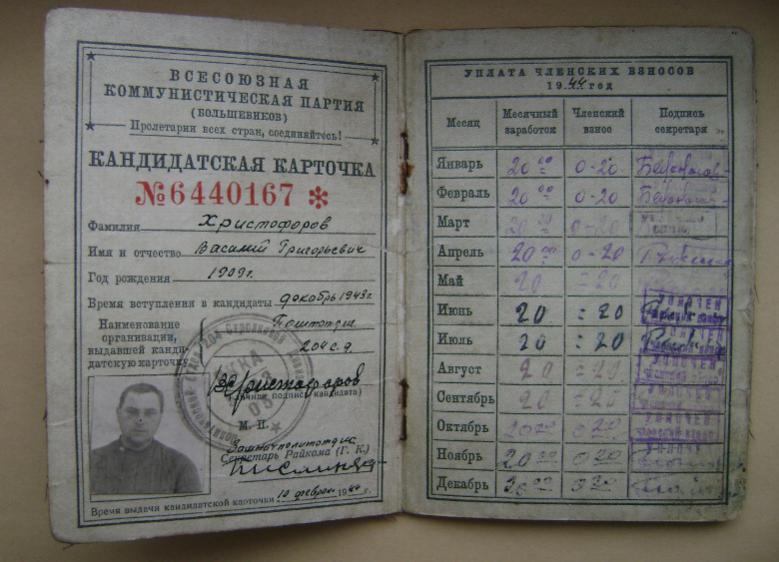 ВСЕСОЮЗНАЯ
КОММУНИСТИЧЕСКАЯ ПАРТИЯ
(БОЛЬШЕВИКОВ)
Пролетарии всех стран, соединяйтесь!
КАНДИДАТСКАЯ КАРТОЧКА
№6440167 *
Фамилия Христофоров
Имя и отчество Василий Григорьевич
Год рождения 1909г.
Время вступления в кандидаты декабрь 1943г
Наименование
организации,
выдавшей канди-
датскую карточку
204 с.д.
Христофоров
(Личная подпись кандидата)
М. П.
Секретарь Райкома (Г. К.)
Время выдачи кандидатской карточки 10 феврал 1944 г.
УПЛАТА ЧЛЕНСКИХ ВЗНОСОВ
1944 год
Месяц Месячный заработок Членский взнос Подпись секретаря
Январь 20 00 0-20
Февраль 20 00 0-20
Март 20 0-20
Апрель 20 00 0-20
Май 20 = 20
Июнь 20 = 20
Июль 20 = 20
Август 20 = 20
Сентябрь 20 = 20
Октябрь 20 00 0 20
Ноябрь 20 00 0 20
Декабрь